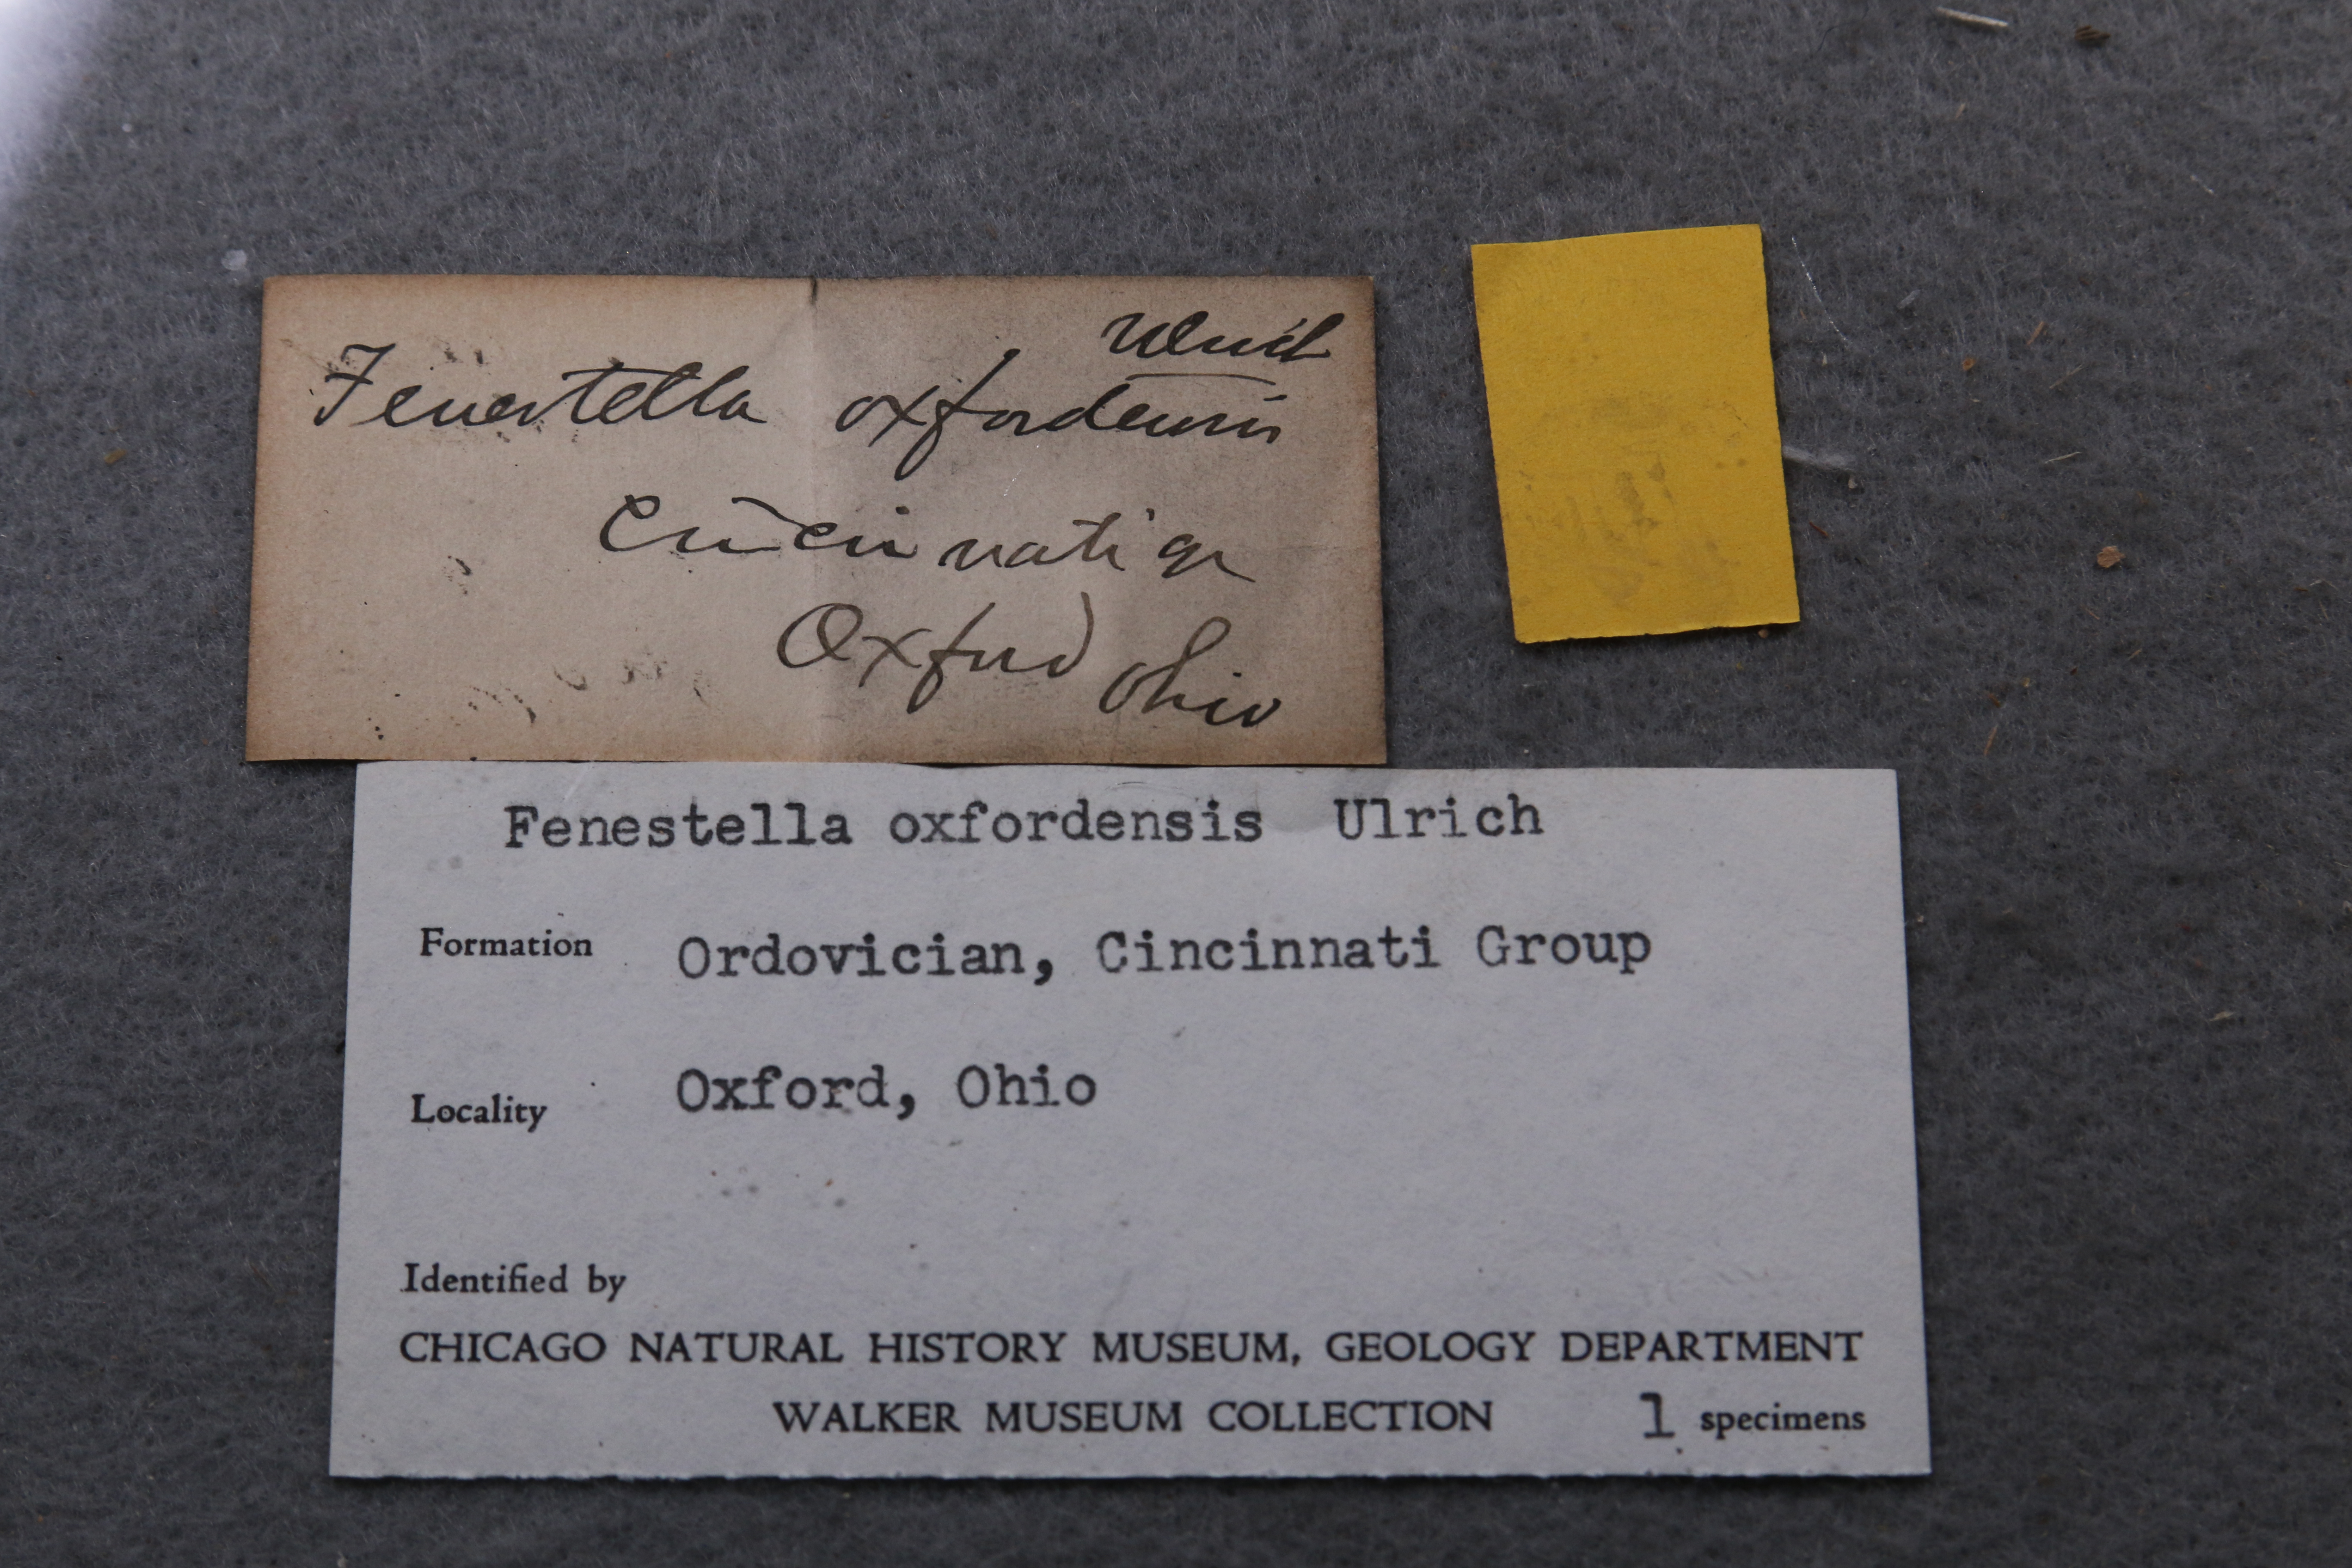 Ulrich
Fenestella oxfordensis
Cincinnati gr
Oxford Ohio
Fenestella oxfordensis Ulrich
Formation Ordovician, Cincinnati Group
Locality Oxford, Ohio
Identified by
CHICAGO NATURAL HISTORY MUSEUM, GEOLOGY DEPARTMENT
WALKER MUSEUM COLLECTION 1 specimens